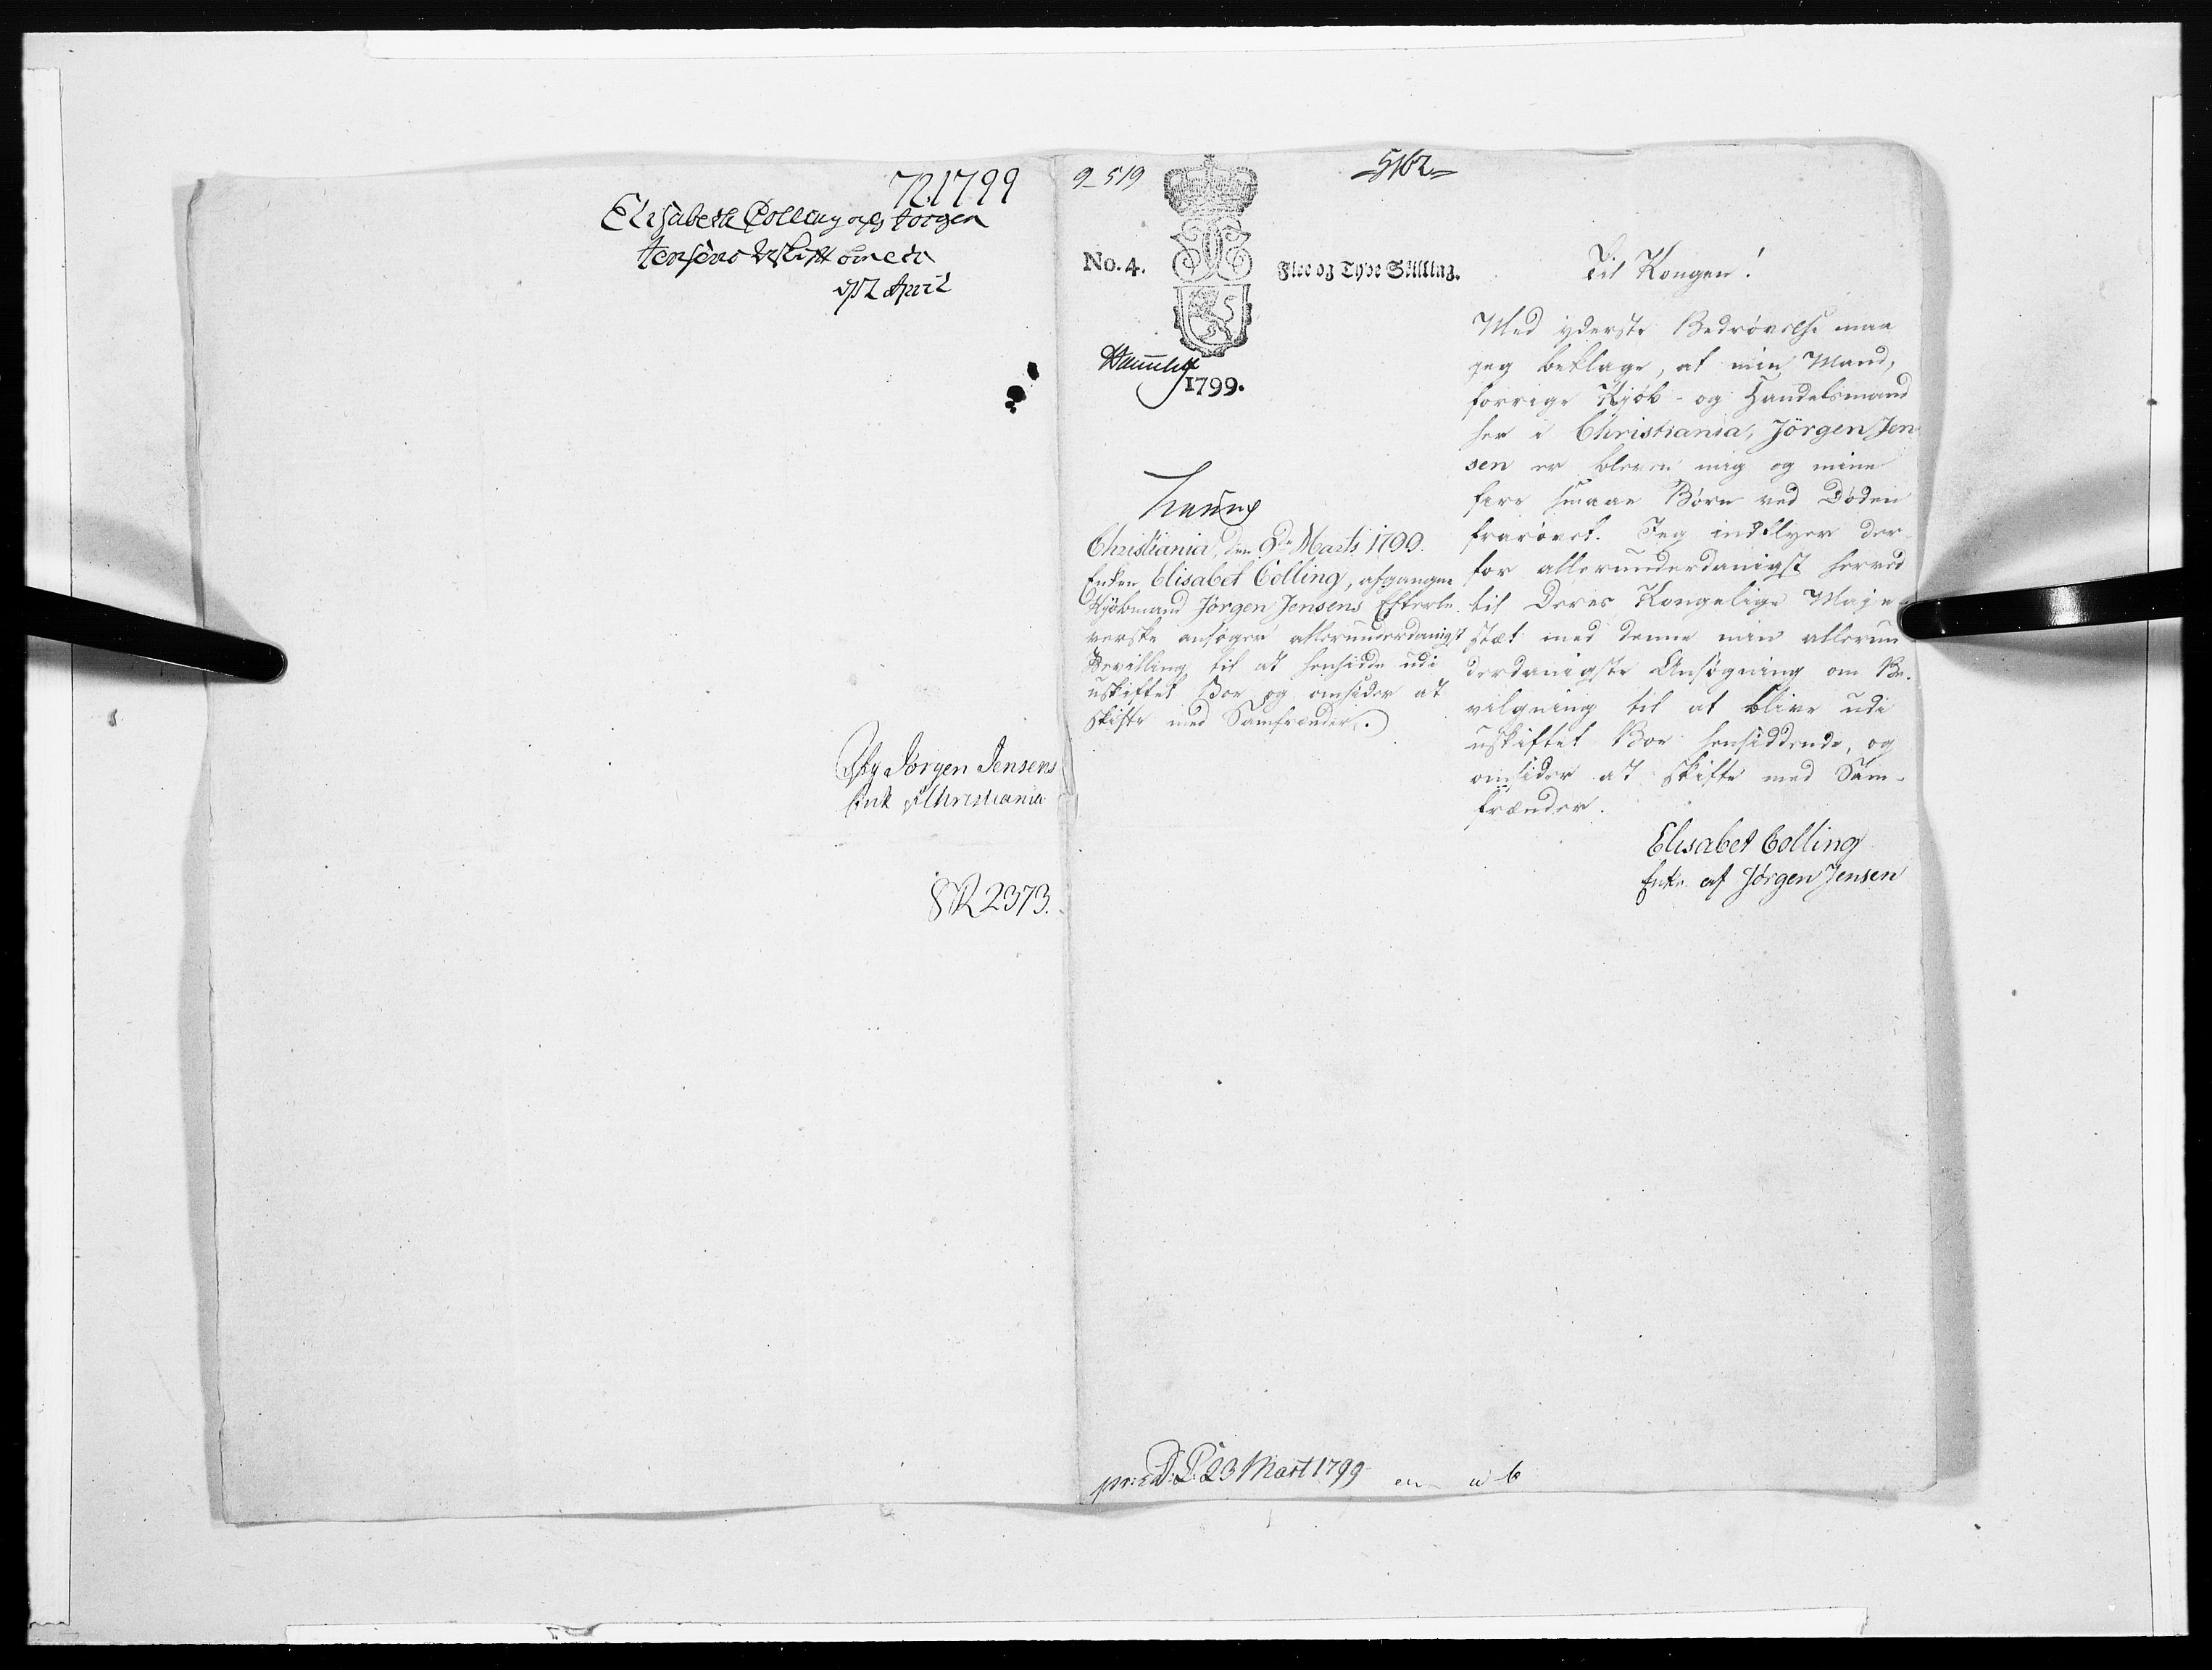 721799
Elisabeth Colling afg Jørgen
Jensens Uskiftt
12 April
Afg Jørgen Jensens
Enk i Christiania
SR 2373.
9_519
5162
No. 4.
Fire og Tyve Skilling.
1799.
Christiania, den 8de Marts 1799.
Enken Elisabet Colling, afgangne
Kjöbmand Jørgen Jensens Efterle-
verske ansøger allerunderdanigst
Bevilling til at hensidde udi
uskiftet Boe og omsider at
skifte med Samfrænder.
Til Kongen!
Med yderste Bedrøvelse maa
jeg beklage, at min Mand,
forrige Kjöb- og Handelsmand
her i Christiania, Jörgen Jen
sen er bleven mig og mine
fire smaae Børn ved Døden
frarøvet. Jeg indflyer der-
for allerunderdanigst herved
til Deres Kongelige Maje-
stæt med denne min allerun
derdanigste Ansøgning om Be-
vilgning til at blive udi
uskiftet Boe hensiddende, og
omsider at skifte med Sam-
frænder.
Elisabet Colling
Enke af Jørgen Jensen
23 Mart 1799